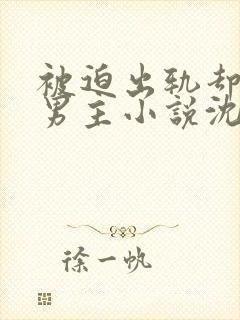 被迫出轨却
男主小說沈
徐一帆